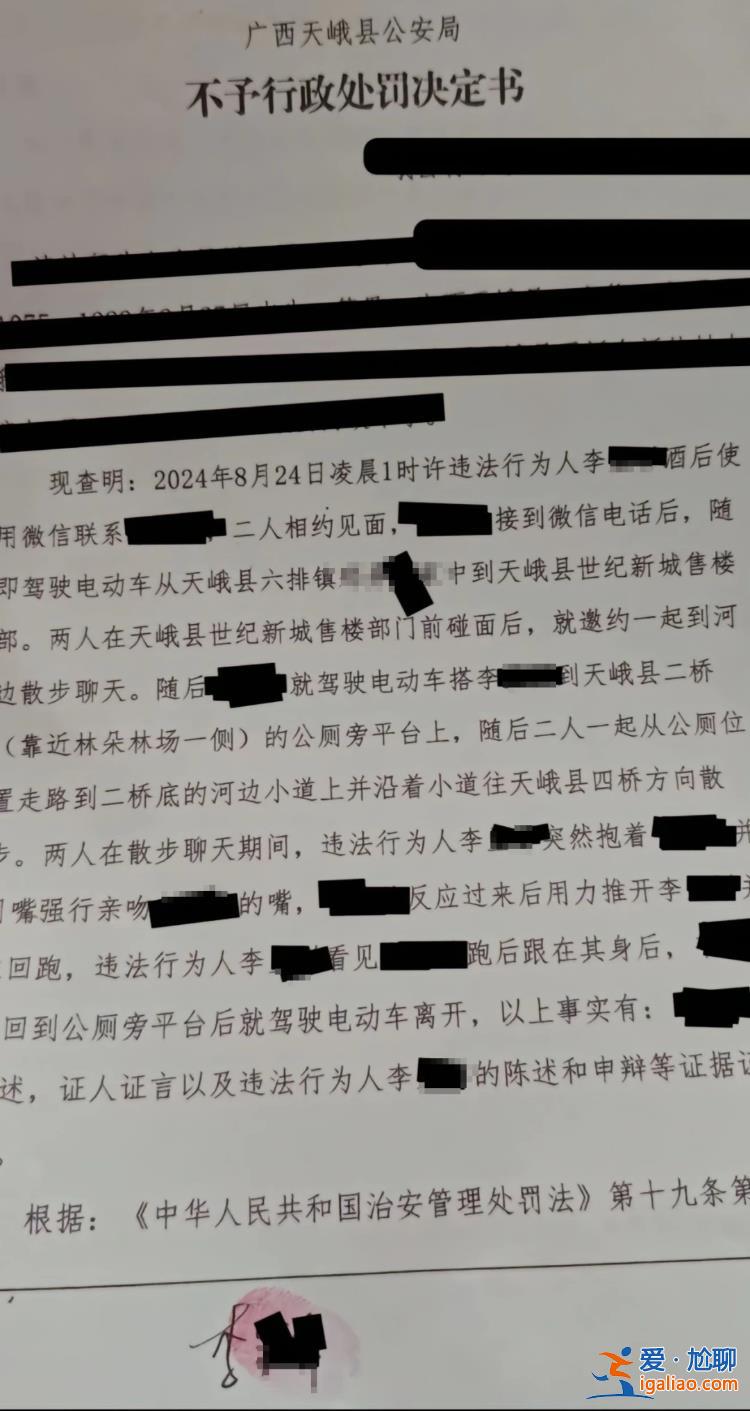 广西天峨县公安局
不予行政处罚决定书
现查明：2024年8月24日凌晨1时许违法行为人李 酒后使
用微信联系 ，二人相约见面， 接到微信电话后，随
即驾驶电动车从天峨县六排镇 中到天峨县世纪新城售楼
部。两人在天峨县世纪新城售楼部门前碰面后，就邀约一起到河
边散步聊天。随后 就驾驶电动车搭李 到天峨县二桥
（靠近林朵林场一侧）的公厕旁平台上，随后二人一起从公厕位
置走路到二桥底的河边小道上并沿着小道往天峨县四桥方向散
步。两人在散步聊天期间，违法行为人李 突然抱着 并
嘴强行亲吻 的嘴， 反应过来后用力推开李 并
回跑，违法行为人李 看见 跑后跟在其身后，
回到公厕旁平台后就驾驶电动车离开，以上事实有：
述，证人证言以及违法行为人李 的陈述和申辩等证据证
。
根据：《中华人民共和国治安管理处罚法》第十九条第
李
爱·尬聊
igaliao.com